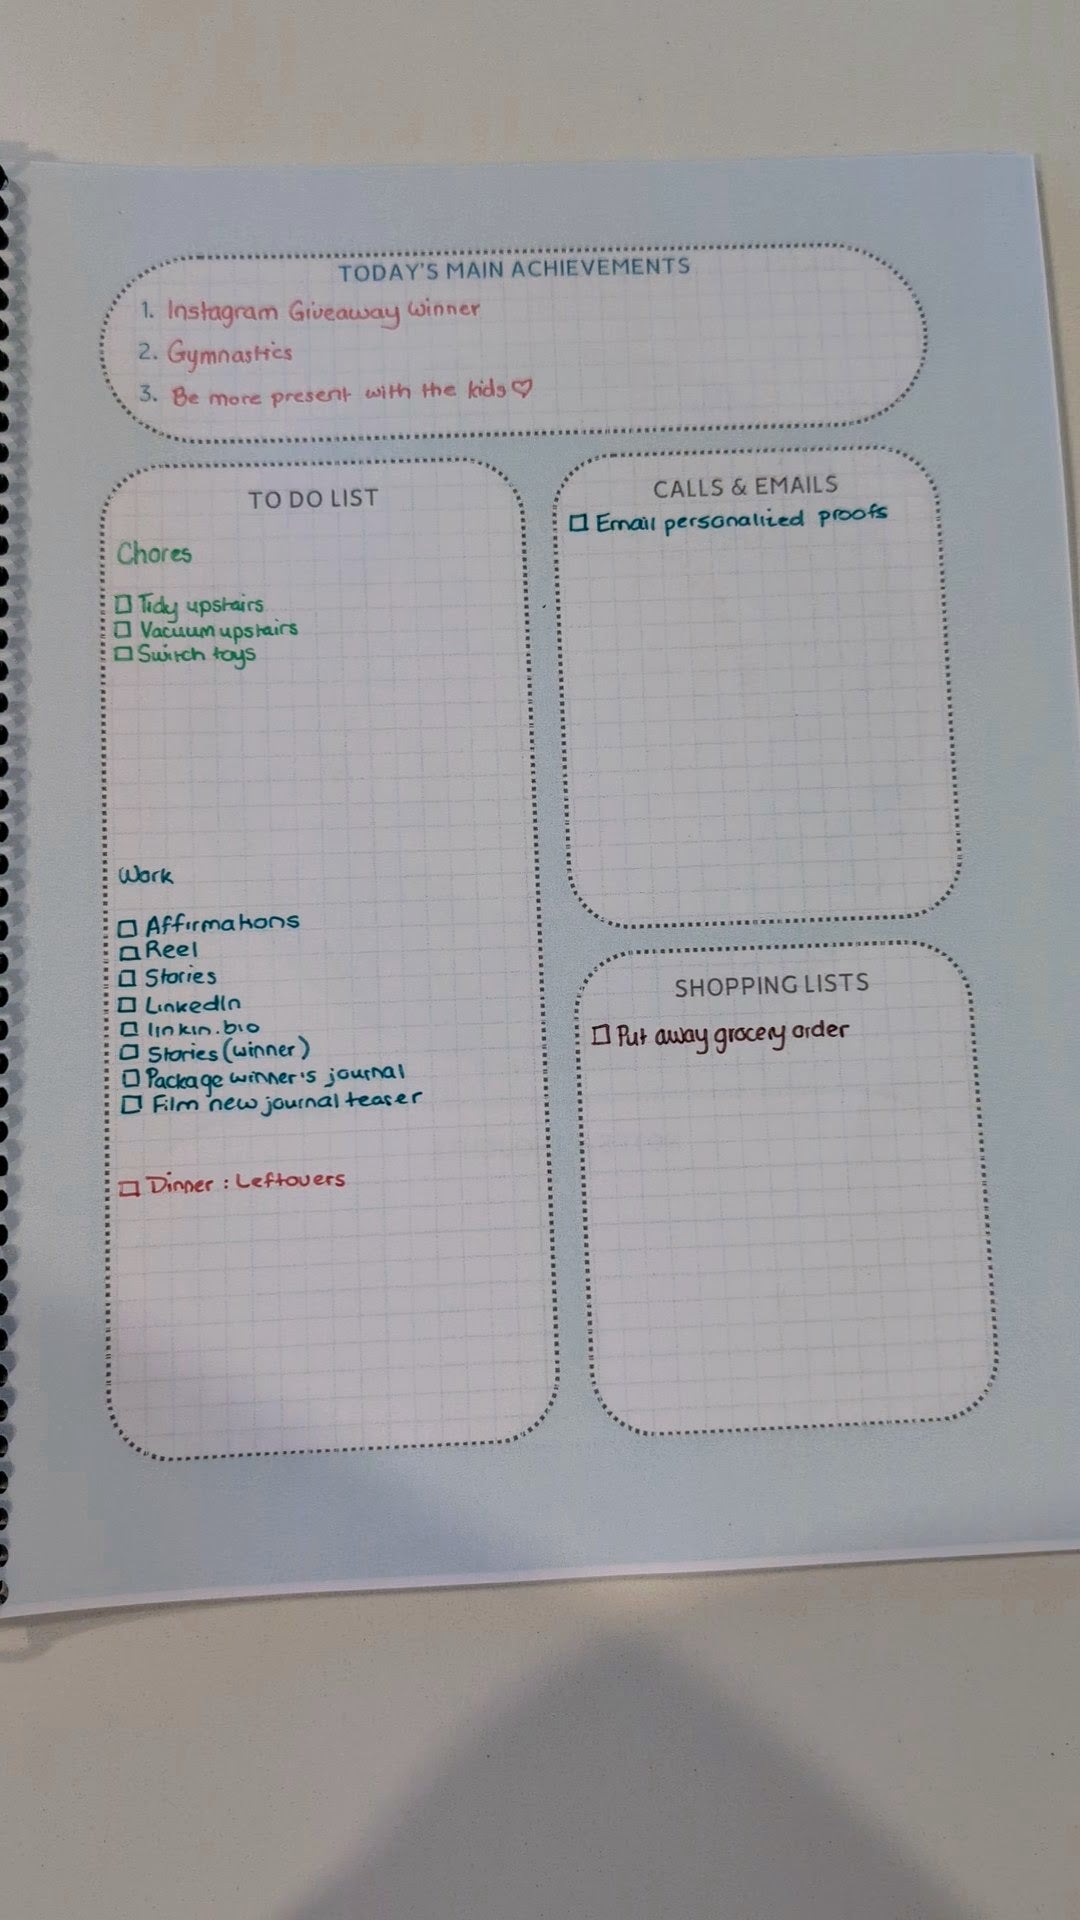 TODAY'S MAIN ACHIEVEMENTS
1. Instagram Giveaway Winner
2. Gymnastics
3. Be more present with the kids♡
TO DO LIST
Chores
☐ Tidy upstairs
☐ Vacuum upstairs
☐ Switch toys
Work
☐ Affirmations
☐ Reel
☐ Stories
☐ LinkedIn
☐ linkin.bio
☐ Stories (winner)
☐ Package winner's journal
☐ Film new journal teaser
☐ Dinner : Leftovers
CALLS & EMAILS
☐ Email personalized proofs
SHOPPING LISTS
☐ Put away grocery order